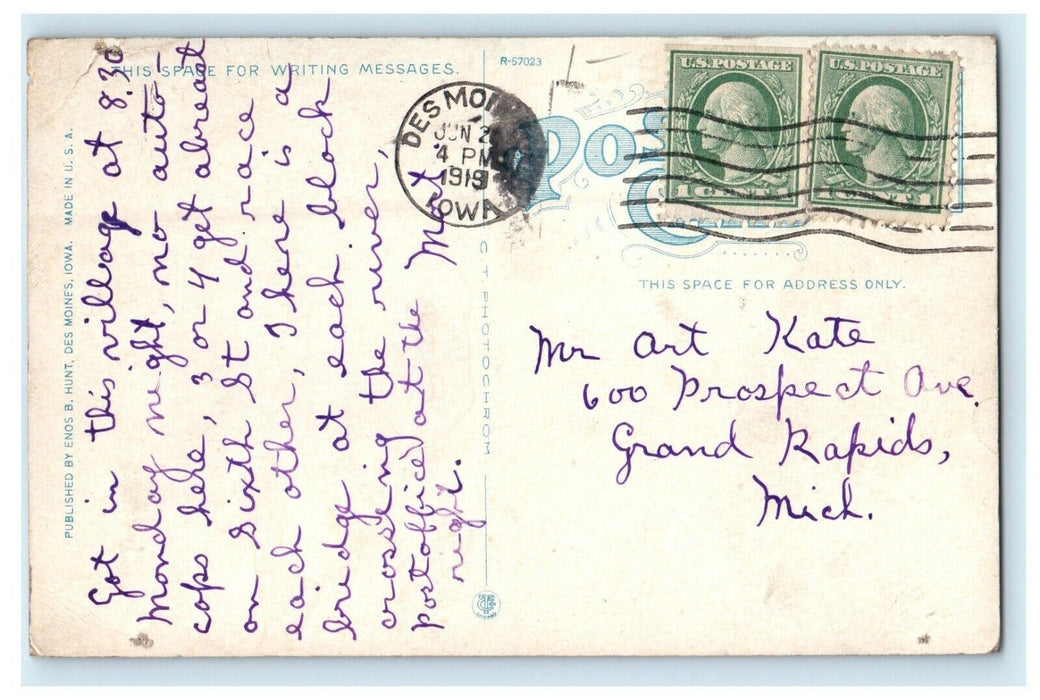 THIS SPACE FOR WRITING MESSAGES.
R-57023
Got in this village at 8.30
Monday night, no auto-
cops here, 3 or 4 get abreast
on Sixth St and race
each other, There is a
bridge at each block
crossing the river,
postoffice at the
right.
Mart
PUBLISHED BY ENOS B. HUNT, DES MOINES, IOWA. MADE IN U. S. A.
C T PHOTOCHROM
DES MOI
JUN 2
4 PM
1919
IOWA
U.S. POSTAGE
1 CENT 1
U.S. POSTAGE
1 CENT 1
Pos
THIS SPACE FOR ADDRESS ONLY.
Mr Art Kate
600 Prospect Ave.
Grand Rapids,
Mich.